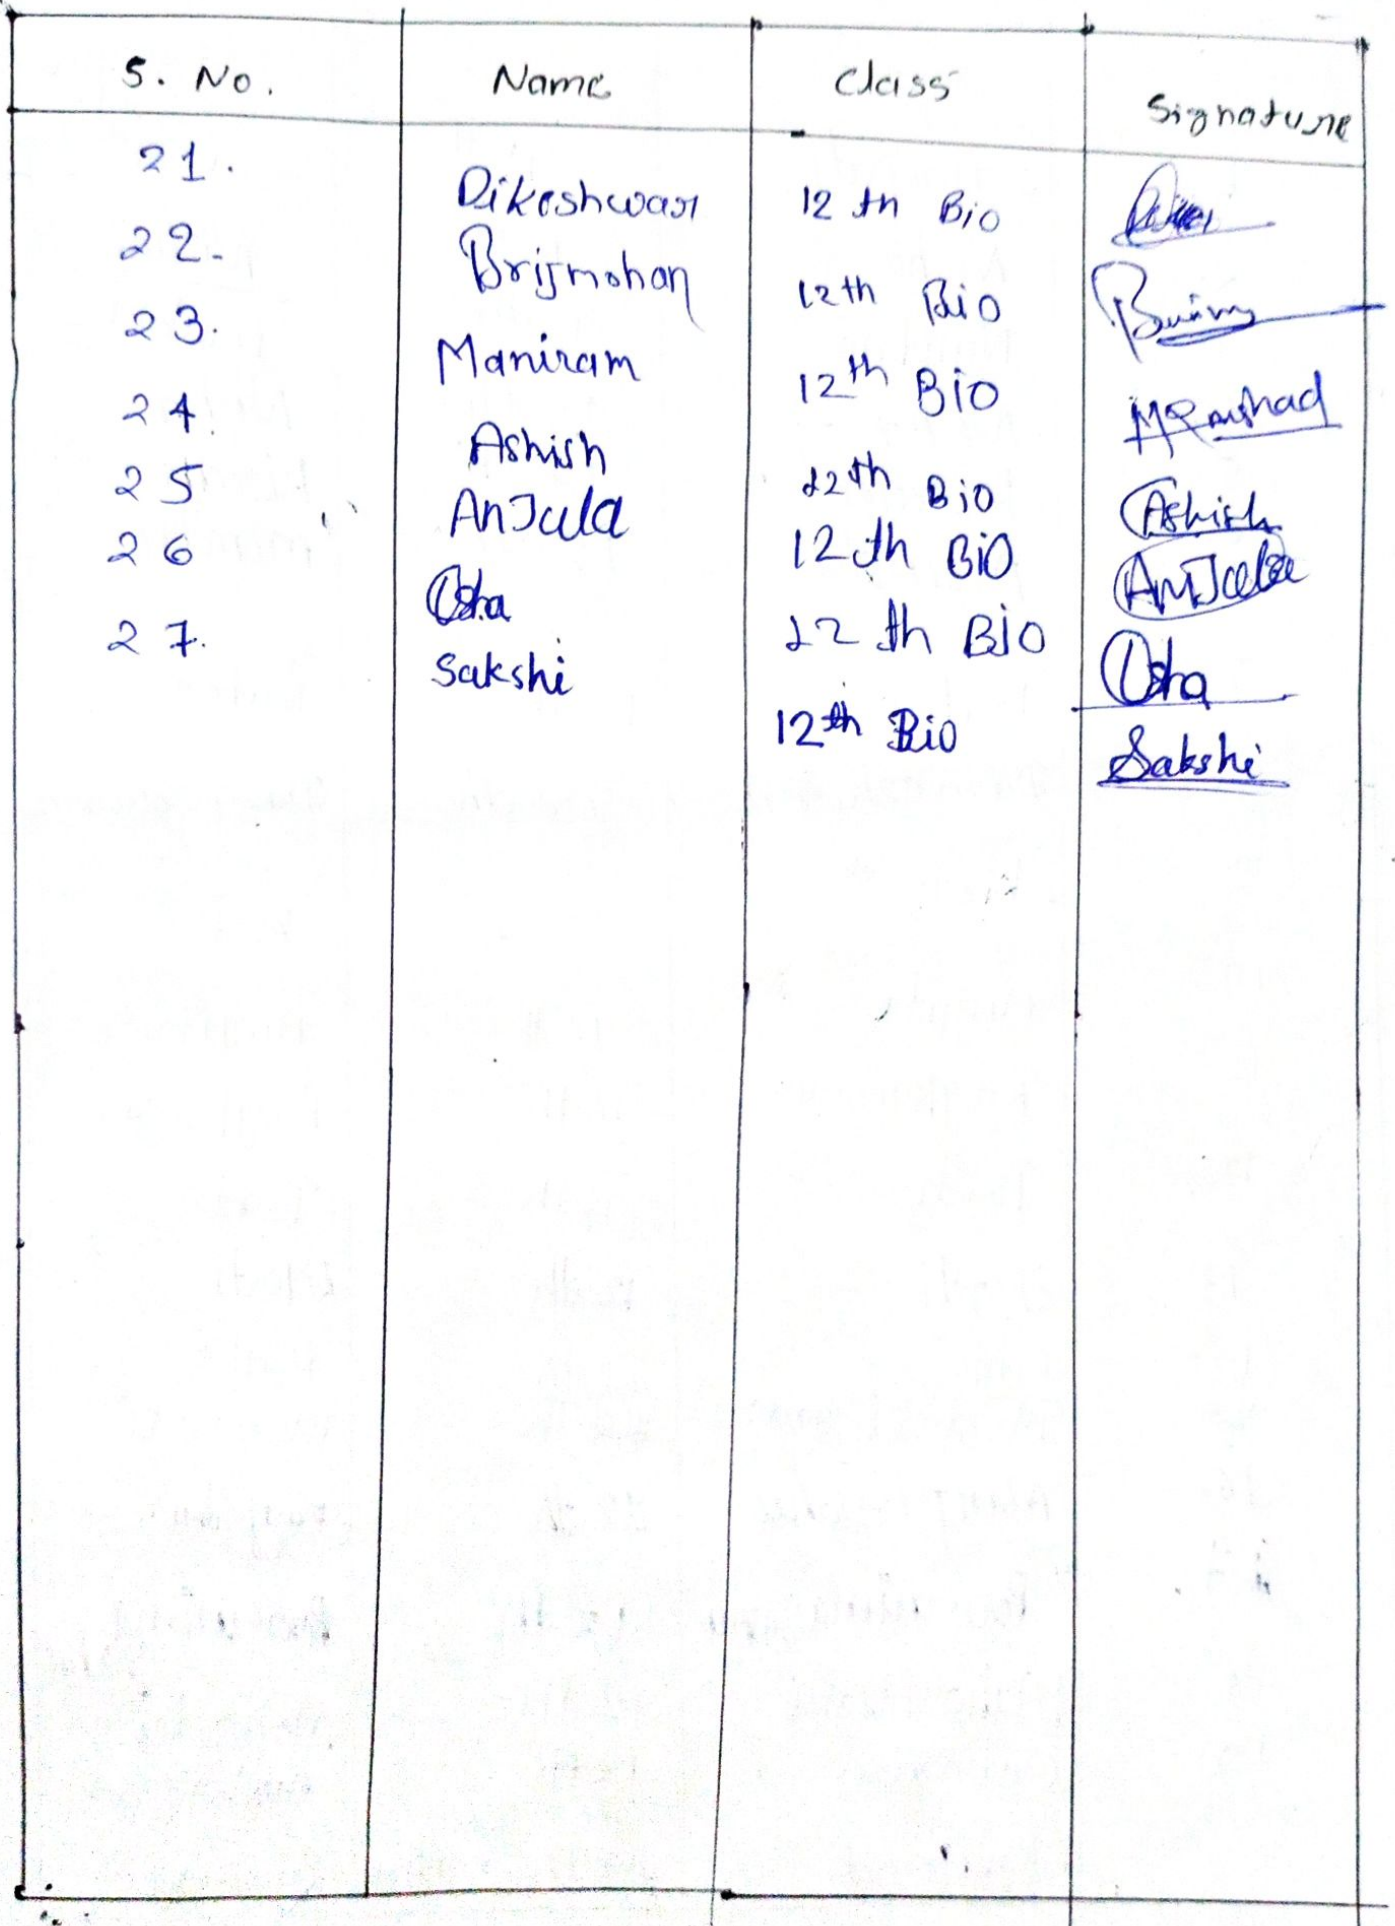 S. No. Name Class Signature
21. Dikeshwar 12th Bio
22. Brijmohan 12th Bio
23. Maniram 12th Bio
24 Ashish 12th Bio Ashish
25 AnJula 12th BiO AnJula
26 Usha 12th BiO Usha
27. Sakshi 12th Bio Sakshi